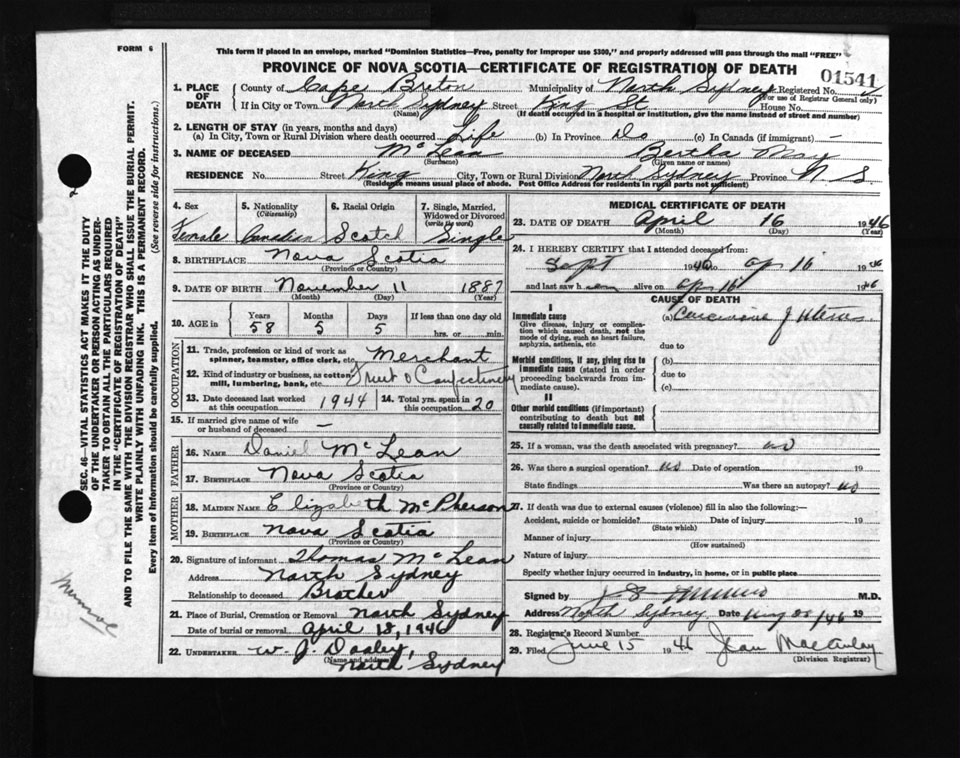 FORM 6
This form if placed in an envelope, marked "Dominion Statistics—Free, penalty for improper use $300," and properly addressed will pass through the mail "FREE"
PROVINCE OF NOVA SCOTIA—CERTIFICATE OF REGISTRATION OF DEATH
01541
1. PLACE OF DEATH County of Cape Breton Municipality of North Sydney Registered No.
(For use of Registrar General only)
If in City or Town North Sydney Street King St House No.
(Name) (If death occurred in a hospital or institution, give the name instead of street and number)
2. LENGTH OF STAY (in years, months and days)
(a) In City, Town or Rural Division where death occurred Life (b) In Province Do (c) In Canada (if immigrant) –
3. NAME OF DECEASED McLean Bertha May
(Surname) (Given name or names)
RESIDENCE No. Street King City, Town or Rural Division North Sydney Province N S
(Residence means usual place of abode. Post Office Address for residents in rural parts not sufficient)
4. Sex Female
5. Nationality (Citizenship) Canadian
6. Racial Origin Scotch
7. Single, Married, Widowed or Divorced (write the word) Single
8. BIRTHPLACE Nova Scotia
(Province or Country)
9. DATE OF BIRTH November 11 1887
(Month) (Day) (Year)
10. AGE in Years 58 Months 5 Days 5 If less than one day old hrs. or min.
OCCUPATION
11. Trade, profession or kind of work as spinner, teamster, office clerk, etc. Merchant
12. Kind of industry or business, as cotton mill, lumbering, bank, etc. Fruit & Confectionery
13. Date deceased last worked at this occupation 1944
14. Total yrs. spent in this occupation 20
15. If married give name of wife or husband of deceased –
FATHER
16. NAME Daniel McLean
17. BIRTHPLACE Nova Scotia
(Province or Country)
MOTHER
18. MAIDEN NAME Elizabeth McPherson
19. BIRTHPLACE Nova Scotia
(Province or Country)
20. Signature of informant Thomas McLean
Address North Sydney
Relationship to deceased Brother
21. Place of Burial, Cremation or Removal North Sydney
Date of burial or removal April 18, 1946
22. UNDERTAKER W. J. Dooley
(Name and address) North Sydney
MEDICAL CERTIFICATE OF DEATH
23. DATE OF DEATH April 16 1946
(Month) (Day) (Year)
24. I HEREBY CERTIFY that I attended deceased from:
Sept 194 to Ap 16 1946
and last saw h alive on Ap 16 1946
CAUSE OF DEATH
I
Immediate cause
Give disease, injury or complication which caused death, not the mode of dying, such as heart failure, asphyxia, asthenia, etc.
(a) Carcinoma of Uterus
due to
Morbid conditions, if any, giving rise to immediate cause (stated in order proceeding backwards from immediate cause).
(b)
due to
(c)
II
Other morbid conditions (if important) contributing to death but not causally related to immediate cause.
25. If a woman, was the death associated with pregnancy? no
26. Was there a surgical operation? no Date of operation 19
State findings Was there an autopsy? no
27. If death was due to external causes (violence) fill in also the following:—
Accident, suicide or homicide? Date of injury 19
(State which)
Manner of injury
(How sustained)
Nature of injury
Specify whether injury occurred in industry, in home, or in public place
Signed by M.D.
Address North Sydney Date /46 19
28. Registrar's Record Number
29. Filed June 15 1946 Jean Macaulay
(Division Registrar)
SEC. 46—VITAL STATISTICS ACT MAKES IT THE DUTY OF THE UNDERTAKER OR PERSON ACTING AS UNDERTAKER TO OBTAIN ALL THE PARTICULARS REQUIRED IN THE "CERTIFICATE OF REGISTRATION OF DEATH"
AND TO FILE THE SAME WITH THE DIVISION REGISTRAR WHO SHALL ISSUE THE BURIAL PERMIT.
WRITE PLAINLY WITH UNFADING INK. THIS IS A PERMANENT RECORD.
Every item of information should be carefully supplied. (See reverse side for instructions.)